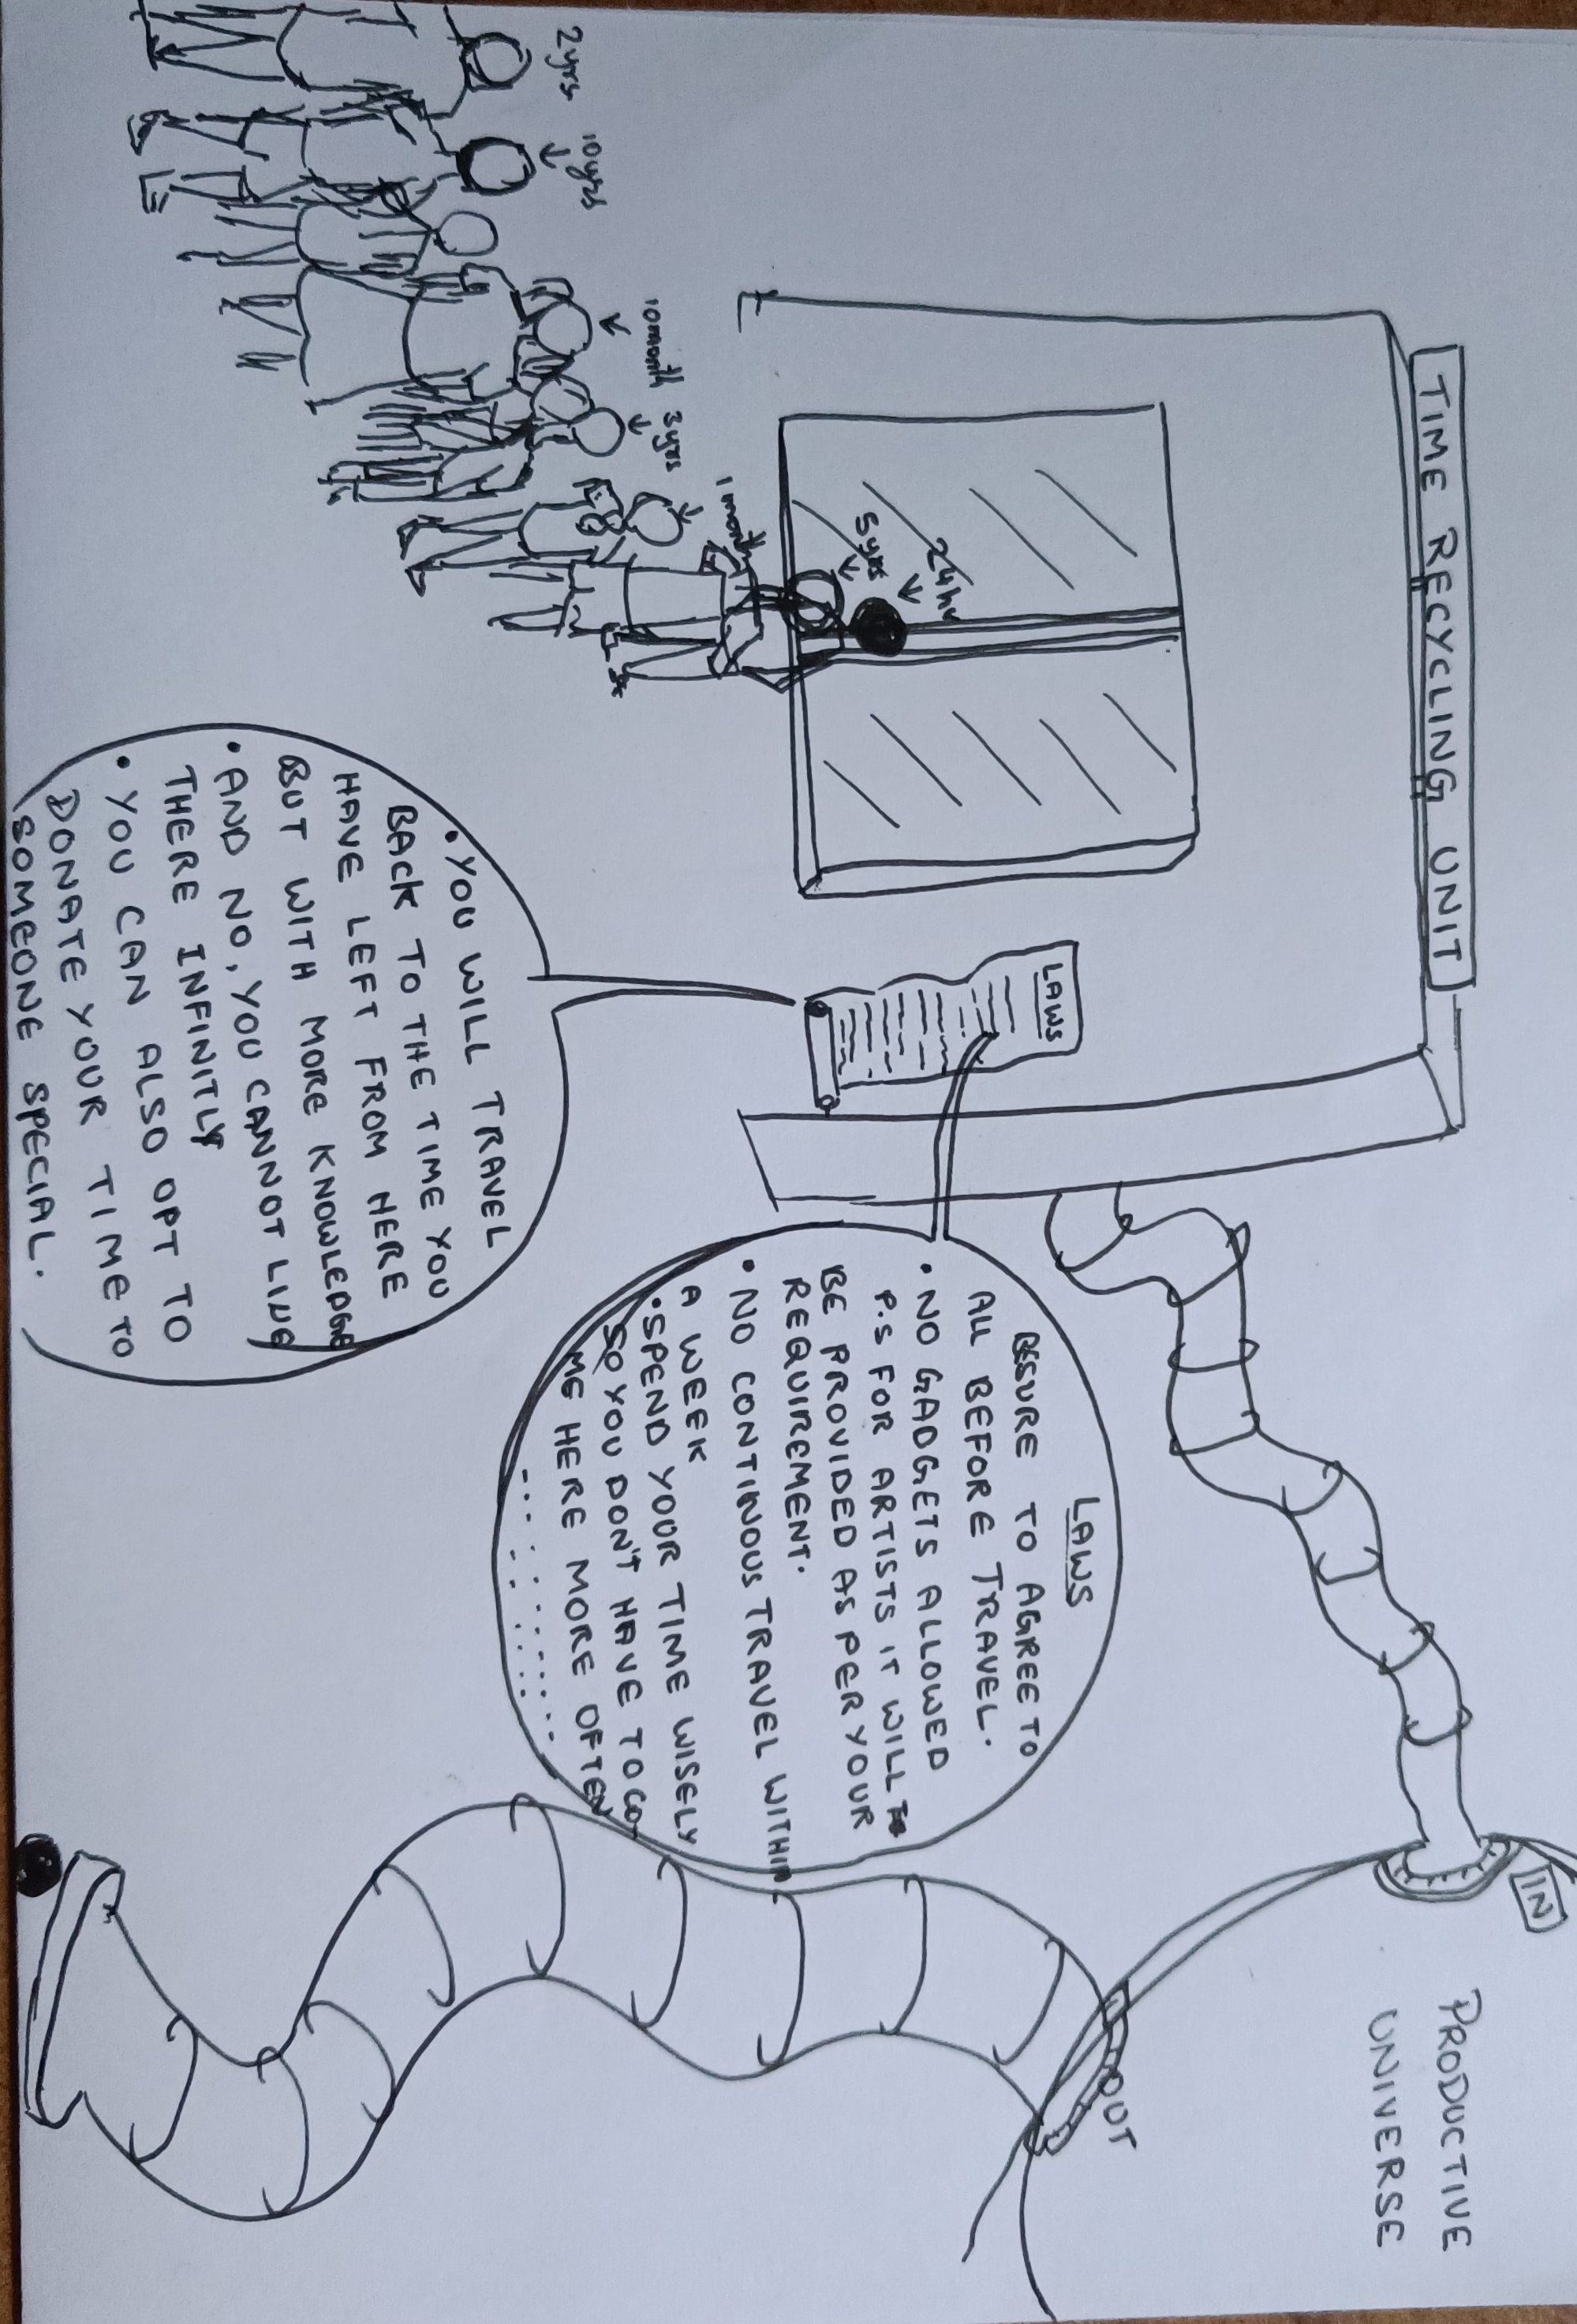 TIME RECYCLING UNIT
PRODUCTIVE
UNIVERSE
IN
OUT
24hr
5yrs
1 month
3yrs
10month
10yrs
2yrs
LAWS
LAWS
BESURE TO AGREE TO
ALL BEFORE TRAVEL.
• NO GADGETS ALLOWED
P.S FOR ARTISTS IT WILL
BE PROVIDED AS PER YOUR
REQUIREMENT.
• NO CONTINOUS TRAVEL WITHIN
A WEEK
• SPEND YOUR TIME WISELY
SO YOU DON'T HAVE TO CO
ME HERE MORE OFTEN
• YOU WILL TRAVEL
BACK TO THE TIME YOU
HAVE LEFT FROM HERE
BUT WITH MORE KNOWLEDGE
• AND NO, YOU CANNOT LIVE
THERE INFINITLY
• YOU CAN ALSO OPT TO
DONATE YOUR TIME TO
SOMEONE SPECIAL.